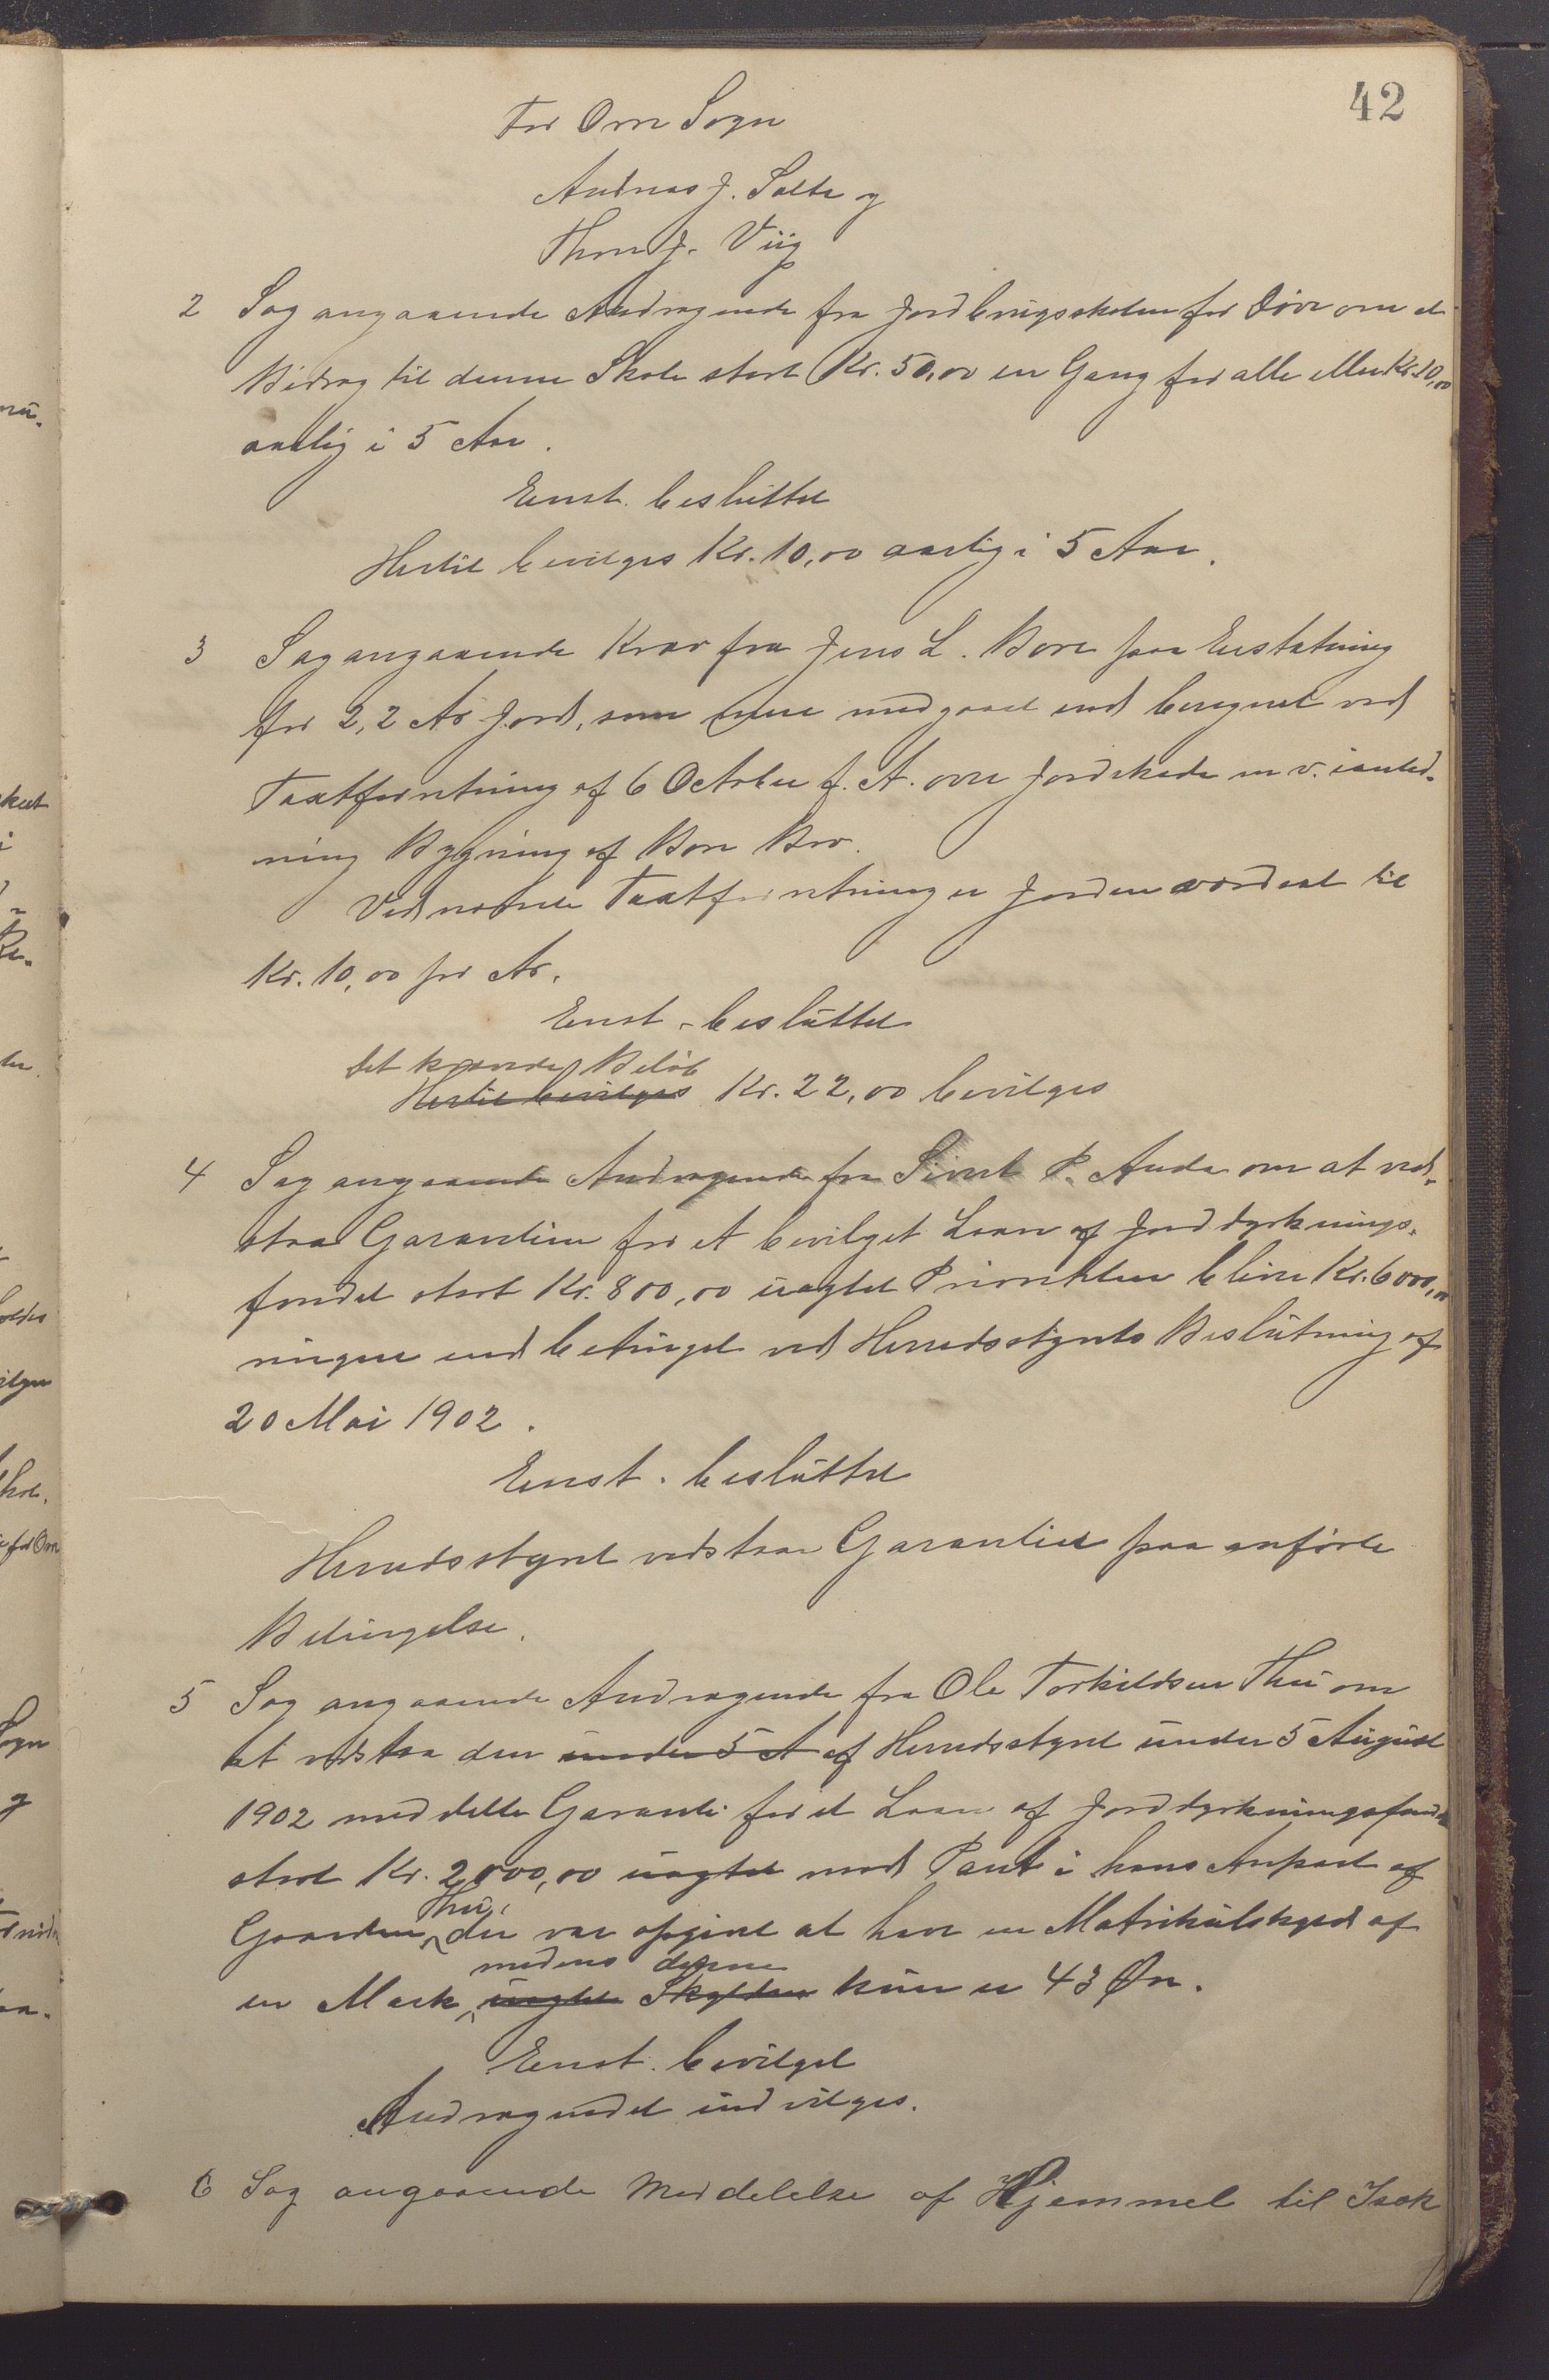 42
For Orre Sogn
Andreas J. Salte og
Thore J. Viig
2 Sag angaaende Andragende fra Jordbrugsskolen for Døve om et
Bidrag til denne Skole stort Kr. 50,00 en Gang for alle eller Kr. 10,00
aarlig i 5 Aar.
Enst. besluttet
Hertil bevilges Kr. 10,00 aarlig i 5 Aar.
3 Sag angaaende Krav fra Jens L. Bore paa Erstatning
for 2,2 Ar Jord, som mere medgaaet end beregnet ved
Taxtforretning af 6 October f. A. over Jordskade m v. ianled-
ning Bygning af Bore Bro.
Ved nævnte Taxtforretning er Jorden værdsat til
Kr. 10,00 pr Ar.
Enst. besluttet
Det krævede Beløb
Hertil bevilges Kr. 22,00 bevilges
4 Sag angaaende Andragende fra Sivert P. Anda om at ved-
staa Garantien for et bevilget Laan af Jorddyrknings-
fondet stort Kr. 800,00 uagtet Prioriteten bliver Kr. 6000,00
ringere end betinget ved Herredsstyrets Beslutning af
20 Mai 1902.
Enst. besluttet
Herredsstyret vedstaar Garantien paa anførte
Betingelse.
5 Sag angaaende Andragende fra Ole Torkildsen Thu om
at vedstaa den under 5 A af Herredsstyret under 5 August
1902 meddelte Garanti for et Laan af Jorddyrkningsfondet
stort Kr. 2,000,00 uagtet mod Pant i hans Anpart af
Thu,
Gaarden der var opgivet at have en Matrikulskyld af
medens denne
en Mark, uagtet Skylden kun er 43 Øre.
Enst. bevilget
Andragendet indvilges.
6 Sag angaaende Meddelelse af Hjemmel til Isak